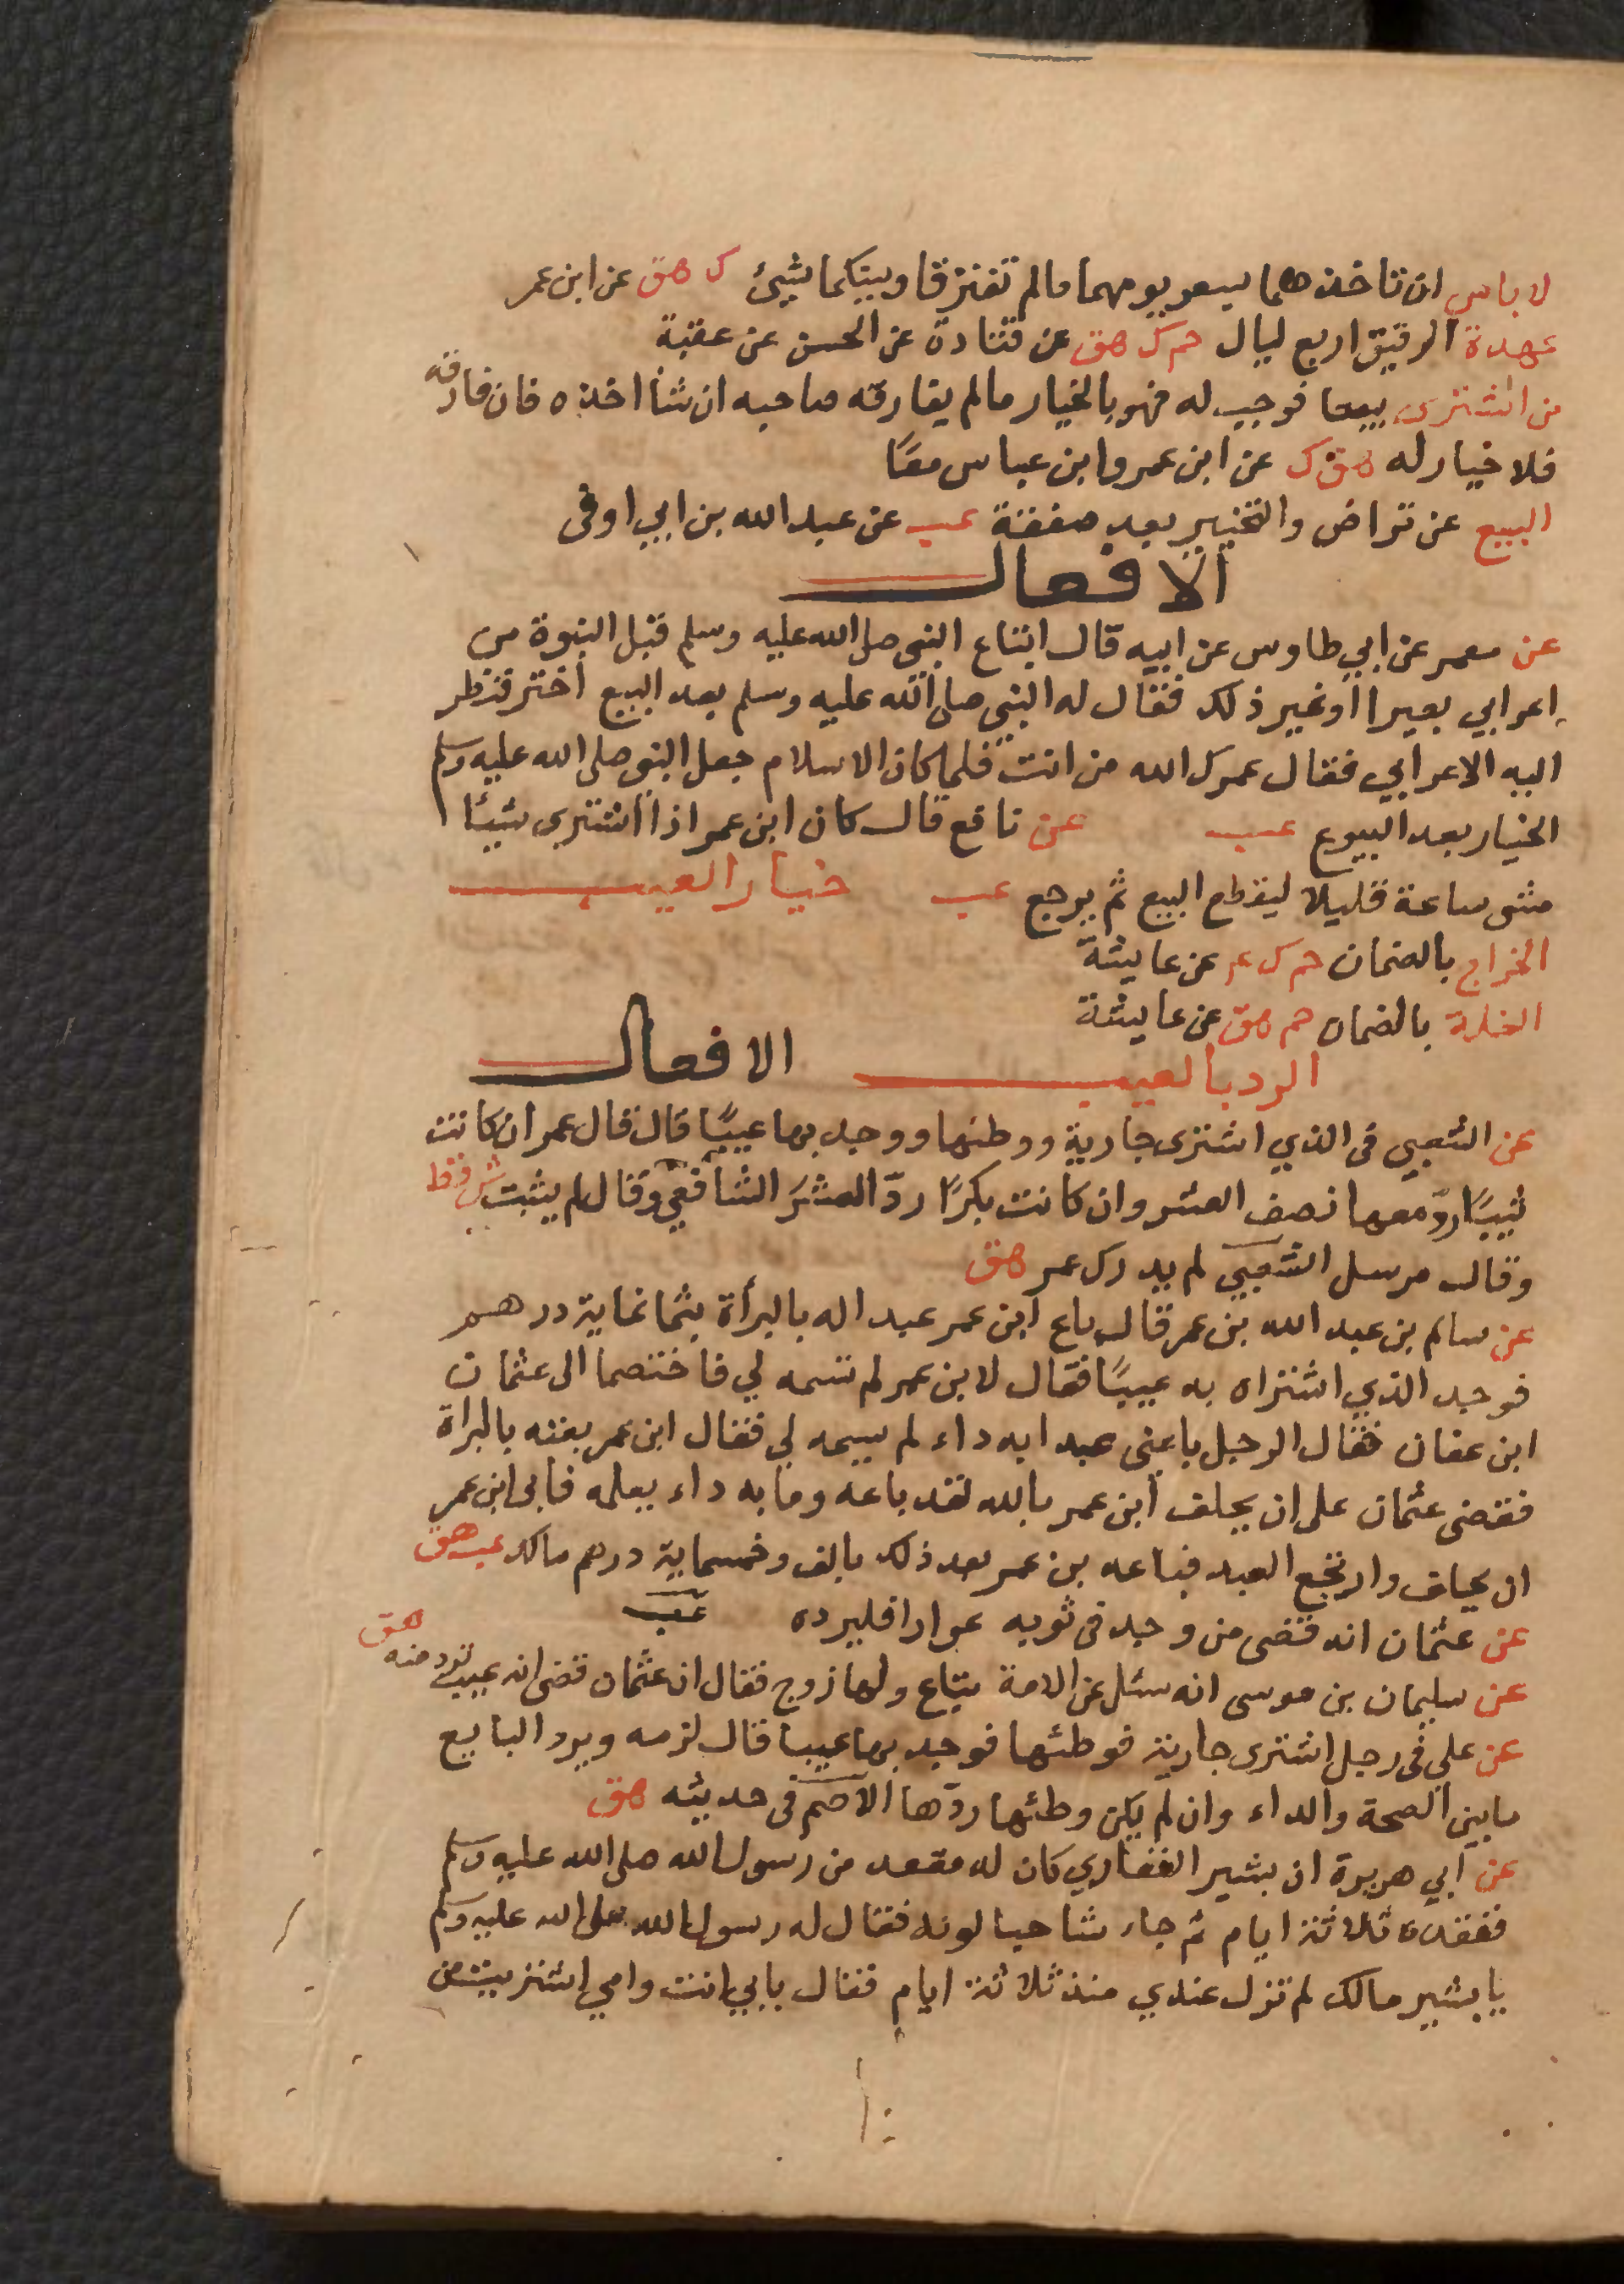 لا باس ان تاخذهما بسعر يومهما مالم تفترقا وبينكما شيئ ك هق عن ابن عمر
عهدة الرقيق اربع ليال حم ك هق عن قتادة عن الحسن عن عقبة
من اشترى بيعا فوجب له فهو بالخيار مالم يفارقه صاحبه ان شأ اخذه فان فارقه
فلا خيار له هق ك عن ابن عمر وابن عباس معًا
البيع عن تراض والتخيير بعد صفقة عب عن عبد الله بن ابي اوفى
الافعال
عن معمر عن ابي طاوس عن ابيه قال ابتاع النبي صلى الله عليه وسلم قبل النبوة من
اعرابي بعيرا اوغير ذلك فقال له النبي صلى الله عليه وسلم بعد البيع اختر فنظر
اليه الاعرابي فقال عمرك الله من انت فلما كان الاسلام جعل النبي صلى الله عليه وسلم
الخيار بعد البيوع عب عن نافع قال كان ابن عمر اذا اشترى شيئا
مشى ساعة قليلا ليقطع البيع ثم يرجع عب خيار العيب
الخراج بالضمان حم ك ع‍ عن عايشة
الغلة بالضمان حم هق عن عايشة
الرد بالعيب الافعال
عن الشعبي فى الذي اشترى جارية ووطئها ووجد بها عيبًا قال قال عمر ان كانت
ثيبًا ردّ معها نصف العشر وان كانت بكرًا ردّ العشرَ الشافعي وقال لم يثبت ش قط
وقال مرسل الشعبي لم يدرك عمر هق
عن سالم بن عبد الله بن عمر قال باع ابن عمر عبدا له بالبرأة بثمانماية درهم
فوجد الذي اشتراه به عيبًا فقال لابن عمر لم تسمه لي فاختصما الى عثمان
ابن عفان فقال الرجل باعنى عبدا به داء لم يسمه لي فقال ابن عمر بعته بالبراة
فقضى عثمان على ان يحلف ابن عمر بالله لقد باعه وما به داء يعلمه فابى ابن عمر
ان يحلف وارتجع العبد فباعه بن عمر بعد ذلك بالف وخمسماية درهم مالك عب هق
عن عثمان انه قضى من وجد فى ثوبه عوارا فليرده عب
عن سليمان بن موسى انه سئل عن الامة تباع ولها زوج فقال ان عثمان قضى انه عيب ترد منه هق
عن علي فى رجل اشترى جارية فوطئها فوجد بها عيبا قال لزمه ويرد البايع
مابين الصحة والداء وان لم يكن وطئها ردّها الاصم فى حديثه هق
عن ابي هريرة ان بشير الغفاري كان له مقعد من رسول الله صلى الله عليه وسلم
ففقده ثلاثة ايام ثم جاء شاحبا لونه فقال له رسول الله صلى الله عليه وسلم
يا بشير مالك لم تزل عندي منذ ثلاثة ايام فقال بابي انت وامي اشتريت من